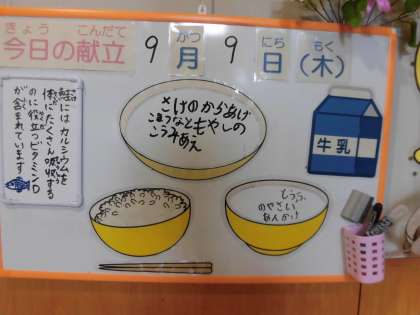 きょう こんだて
今日の献立 9月9日(木)
がつ にち もく
鮭にはカルシウムを
体にたくさん吸収する
のに役立つビタミンD
が含まれています
さけのからあげ
こまつなともやしの
こうみあえ
牛乳
とうふ
のやさい
あんかけ